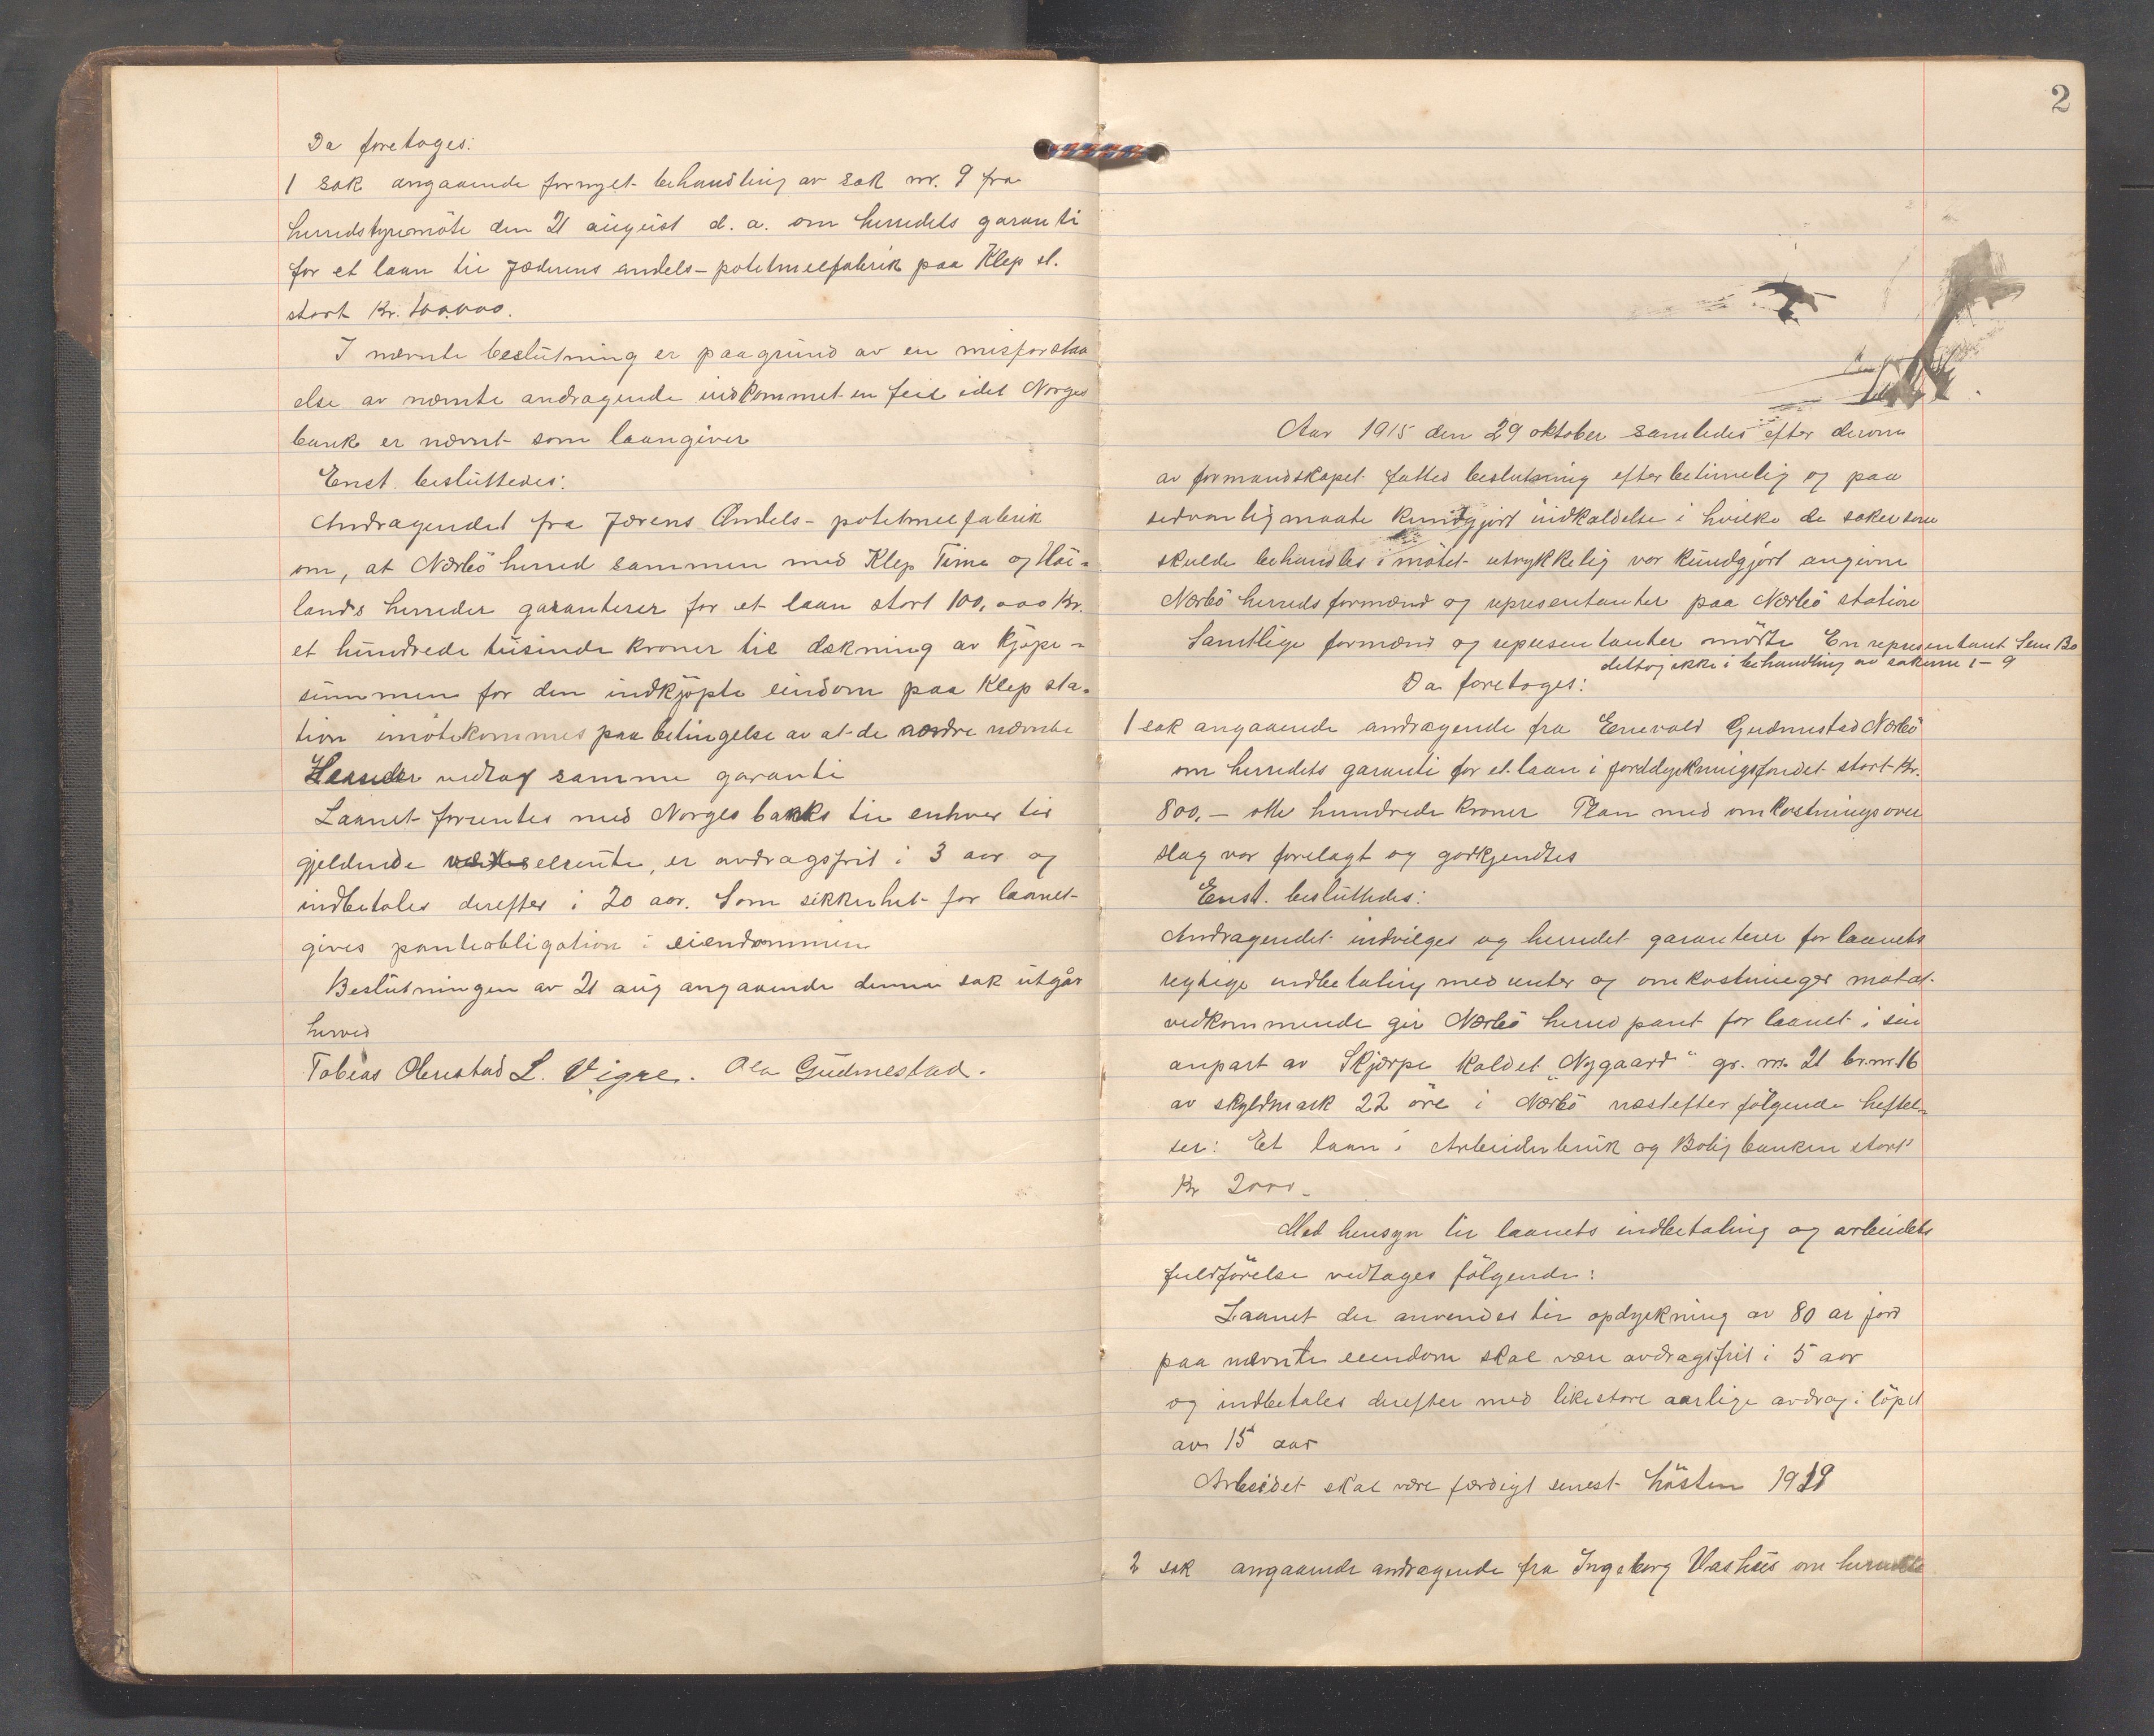 Da foretoges:
1 sak angaaende fornyet behandling av sak nr. 9 fra
herredstyremöte den 21 august d. a. om herredets garanti
for et laan til Jæderens andels-potetmelfabrik paa Klep st.
stort Kr. 100.000.
I nævnte beslutning er paagrund av en misforstaa
else av nævnte andragende indkommet en feil idet Norges
bank er nævnt som laangiver
Enst. besluttedes:
Andragendet fra Jærens Andels-potetmelfabrik
om, at Nærbö herred sammen med Klep Time og Höi-
lands herreder garanterer for et laan stort 100,000 kr.
et hundrede tusinde kroner til dækning av kjöpe-
summen for den indkjöpte eiendom paa Klep sta-
tion imötekommes paa betingelse av at de andre nævnte
Herreder vedtar samme garanti
Laanet forrentes med Norges banks til enhver tid
gjeldende vekselrente, er avdragsfrit i 3 aar og
indbetales derefter i 20 aar. Som sikkerhet for laanet
gives panteobligation i eiendommen
Beslutningen av 21 aug angaaende denne sak utgår
herved
Tobias Obrestad L. Vigre. Ola Gudmestad.
2
Aar 1915 den 29 oktober samledes efter derom
av formandskapet fatted beslutning efter betimelig og paa
sedvanlig maate kundgjort indkaldelse i hvilke de saker som
skulde behandles i mötet utrykkelig var kundgjort angivne
Nærbö herreds formænd og representanter paa Nærbö station
Samtlige formænd og representanter mödte En representant Sem Bö
deltog ikke i behandling av sakerne 1-9
Da foretoges:
1 sak angaaende andragende fra Enevald Gudmestad Nærbö
om herredets garanti for et laan i jorddyrkningsfondet stort kr.
800,- otte hundrede kroner Plan med omkostningsover
slag var forelagt og godkjendtes
Enst. besluttedes:
Andragendet indvilges og herredet garanterer for laanets
rigtige indbetaling med renter og omkostninger motat
vedkommende gir Nærbö herred pant for laanet i sin
anpart av Skjærpe kaldet "Nygaard" gr. nr. 21 br. nr. 16
av skyldmark 22 öre i Nærbö næstefter fölgende heftel-
ser: Et laan i Arbeiderbruk og Boligbanken stort
Kr 2000.-
Med hensyn til laanets indbetaling og arbeidets
fuldförelse vedtages fölgende:
Laanet der anvendes til opdyrkning av 80 ar jord
paa nævnte eiendom skal være avdragsfrit i 5 aar
og indbetales derefter med likestore aarlige avdrag i löpet
av 15 aar
Arbeidet skal være færdigt senest hösten 1919
2 sak angaaende andragende fra Ingeborg Vashus om herredets